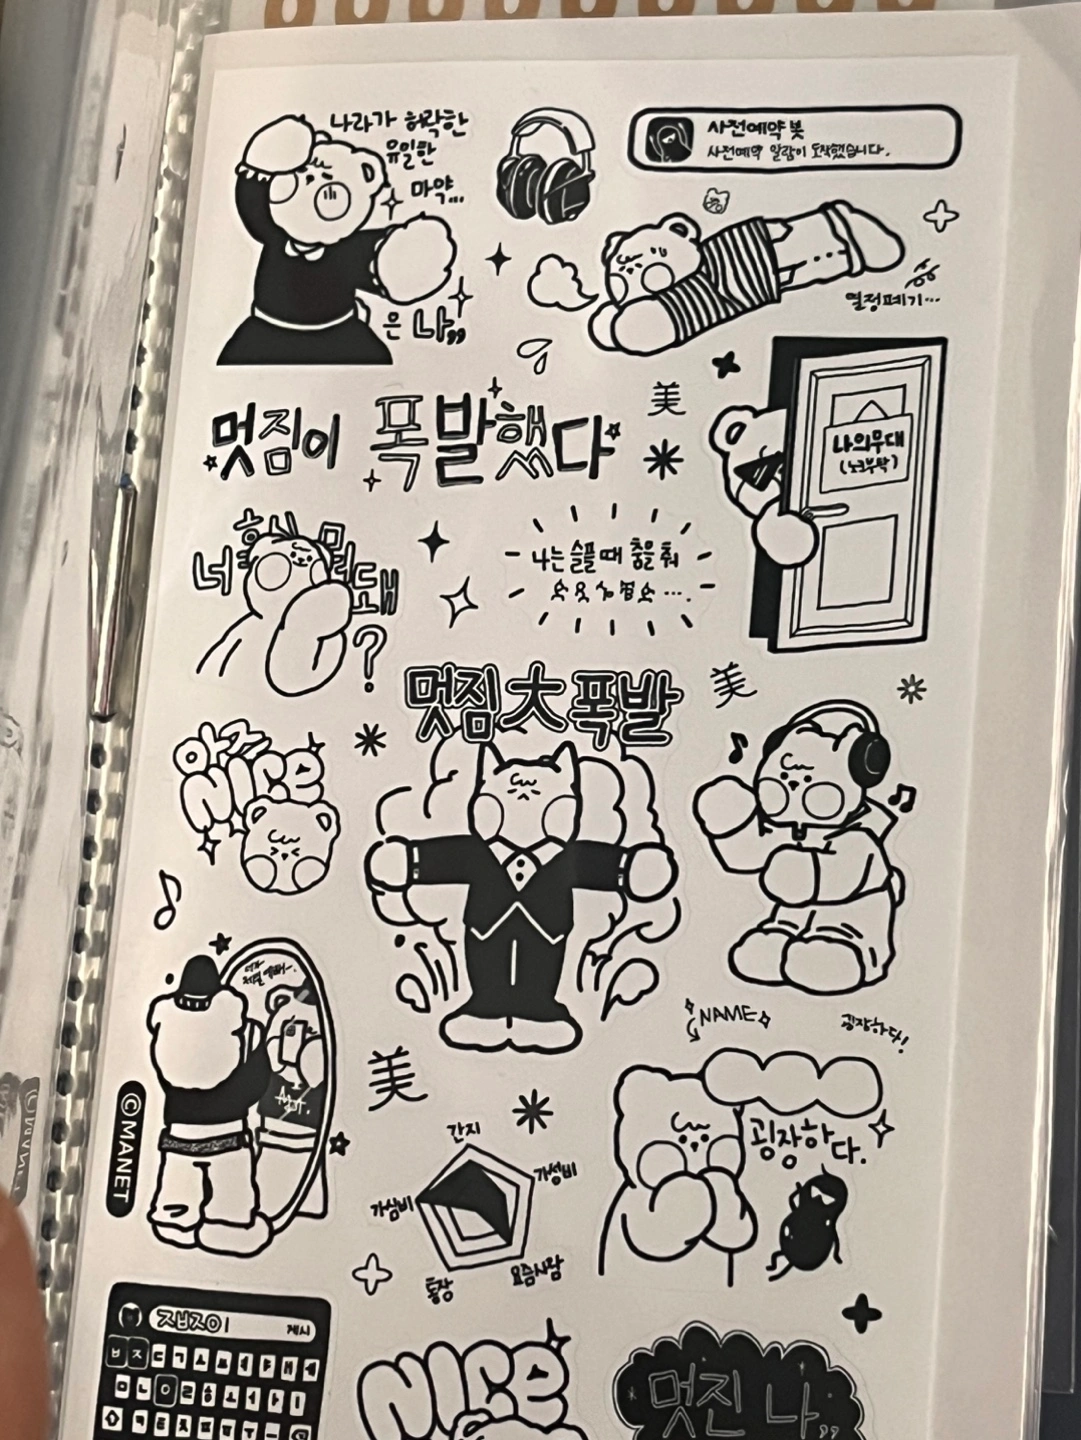 나라가 허락한
유일한
마약...
은 나,,
사전예약 봇
사전예약 알람이 도착했습니다.
열정폐기...
멋짐이 폭발했다
美
나의무대
(노크부탁)
너
뭐
돼
?
나는 슬플 때 춤을 춰
멋짐大폭발
美
아주
Nice
NAME
굉장하다!
美
©MANET
간지
가성비
가심비
통장
요즘사람
굉장하다.
ㅈㅂㅈㅇㅣ
게시
Nice
멋진 나,,